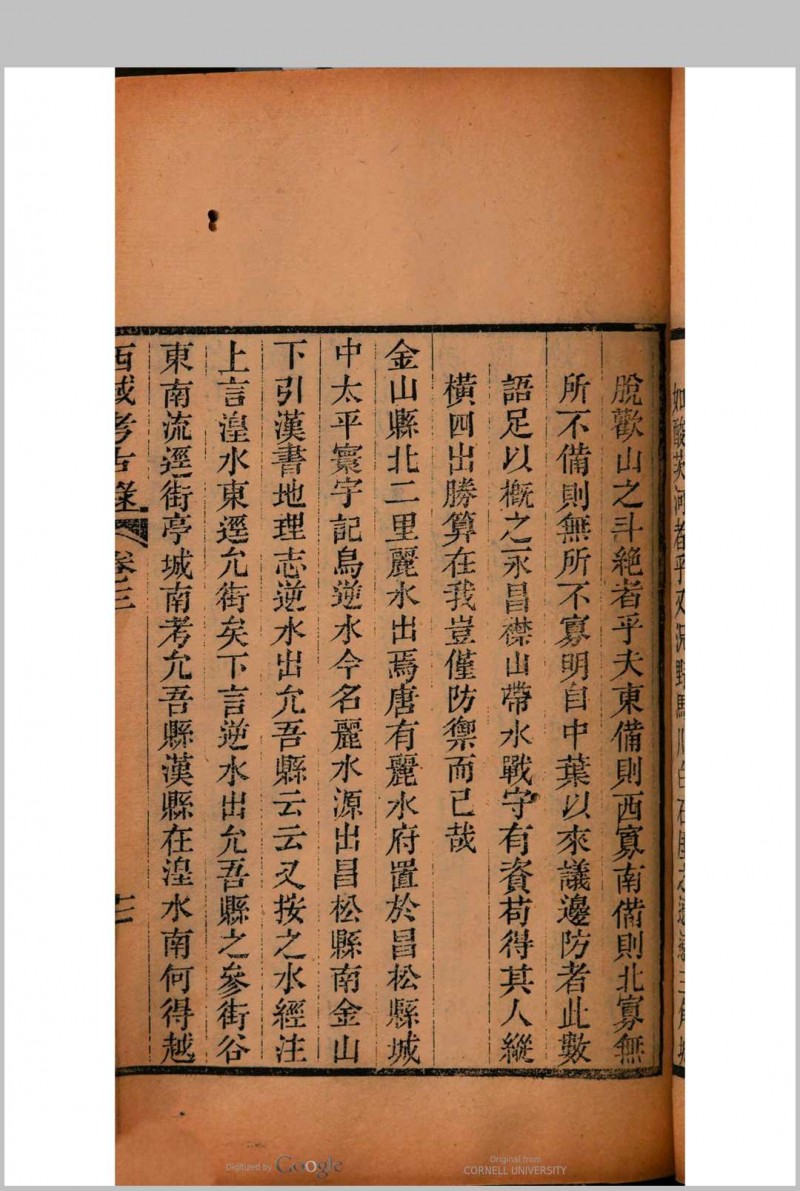 脫歡山之斗絕者乎夫東備則西寡南備則北寡無
所不備則無所不寡明自中葉以來議邊防者此數
語足以概之永昌襟山帶水戰守有資苟得其人縱
橫四出勝算在我豈僅防禦而已哉
金山縣北二里麗水出焉唐有麗水府置於昌松縣城
中太平寰宇記烏逆水今名麗水源出昌松縣南金山
下引漢書地理志逆水出允吾縣云云又按之水經注
上言湟水東逕允街矣下言逆水出允吾縣之參街谷
東南流逕街亭城南考允吾縣漢縣在湟水南何得越
西域考古錄 卷十三
十七
Digitized by Google
Original from
CORNELL UNIVERSITY